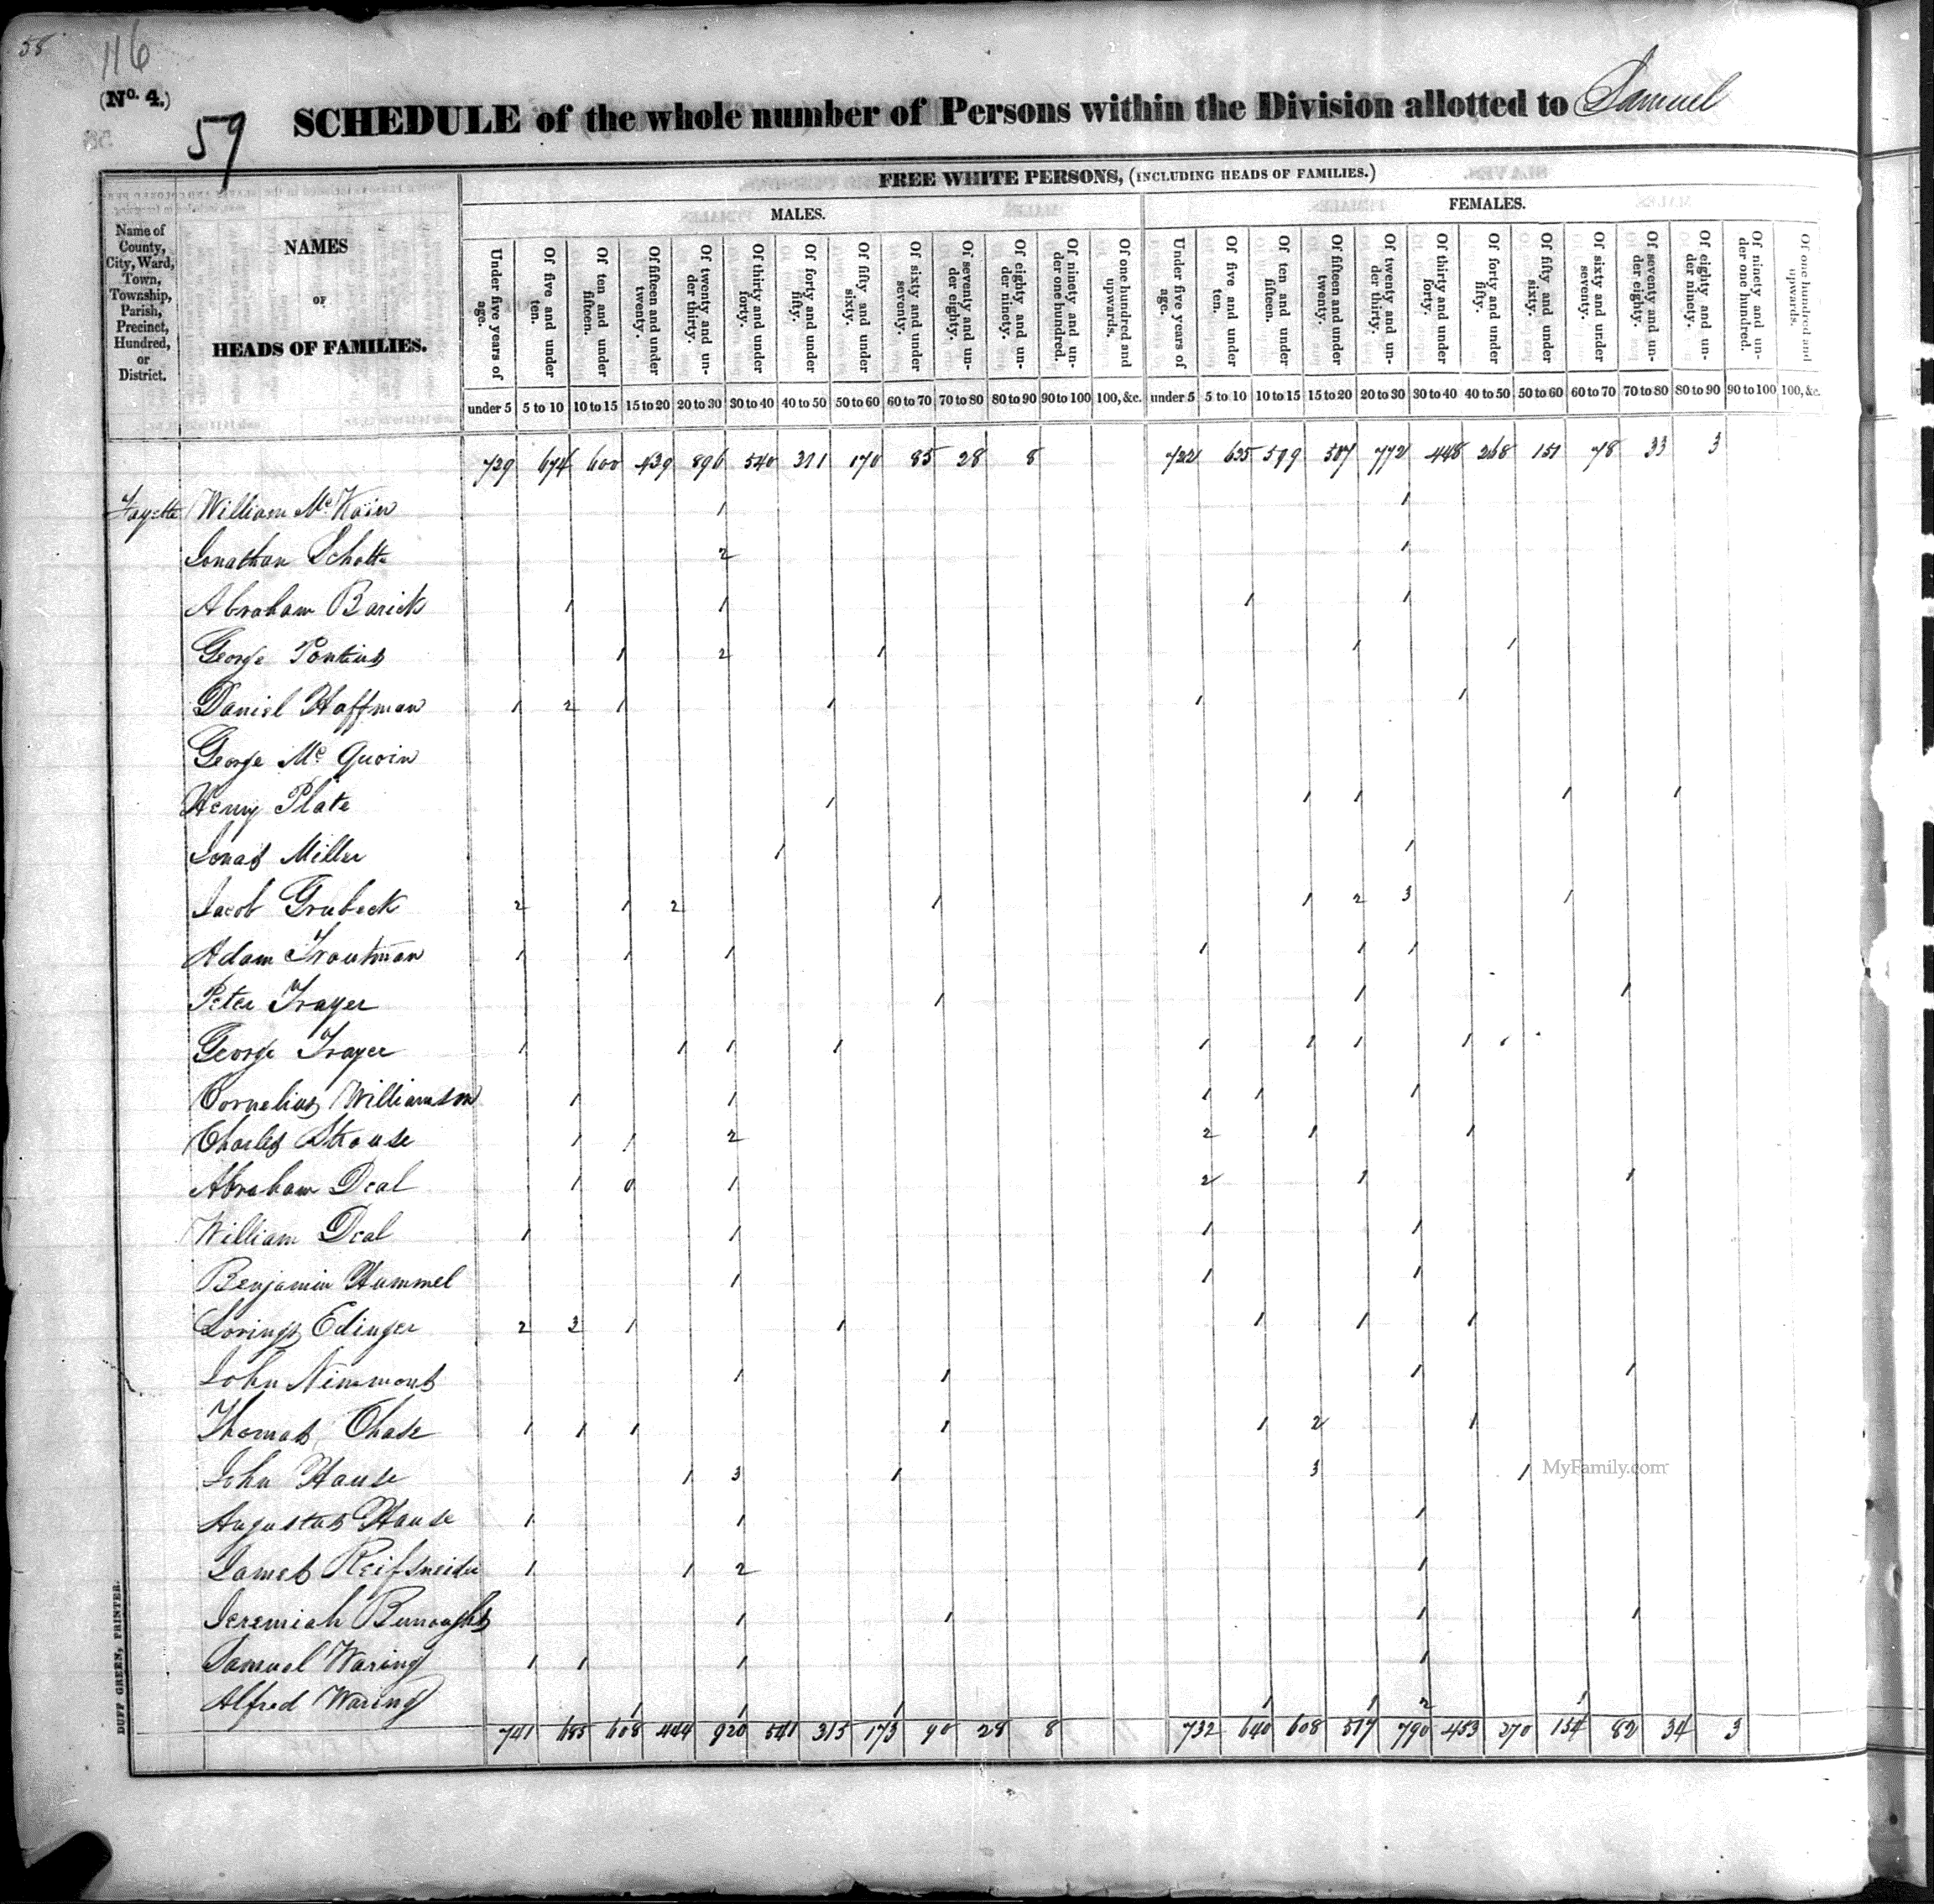 58
116
(No. 4.)
59 SCHEDULE of the whole number of Persons within the Division allotted to Samuel
FREE WHITE PERSONS, (INCLUDING HEADS OF FAMILIES.)
MALES. FEMALES.
Name of County, City, Ward, Town, Township, Parish, Precinct, Hundred, or District.
NAMES OF HEADS OF FAMILIES.
Under five years of age. Of five and under ten. Of ten and under fifteen. Of fifteen and under twenty. Of twenty and under thirty. Of thirty and under forty. Of forty and under fifty. Of fifty and under sixty. Of sixty and under seventy. Of seventy and under eighty. Of eighty and under ninety. Of ninety and under one hundred. Of one hundred and upwards. Under five years of age. Of five and under ten. Of ten and under fifteen. Of fifteen and under twenty. Of twenty and under thirty. Of thirty and under forty. Of forty and under fifty. Of fifty and under sixty. Of sixty and under seventy. Of seventy and under eighty. Of eighty and under ninety. Of ninety and under one hundred. Of one hundred and upwards.
under 5 5 to 10 10 to 15 15 to 20 20 to 30 30 to 40 40 to 50 50 to 60 60 to 70 70 to 80 80 to 90 90 to 100 100, &c. under 5 5 to 10 10 to 15 15 to 20 20 to 30 30 to 40 40 to 50 50 to 60 60 to 70 70 to 80 80 to 90 90 to 100 100, &c.
729 674 600 439 896 540 311 170 85 28 8 722 635 599 507 772 448 268 151 78 33 3
Fayette William McKain 1 1
Jonathan Scholts 2 1
Abraham Barick 1 1 1 1
George Pontius 1 2 1 1 1
Daniel Hoffman 1 2 1 1 1 1
George McQuoin
Henry Plate 1 1 1 1 1
Jonas Miller 1 1
Jacob Grubeck 2 1 2 1 1 2 3 1
Adam Troutman 1 1 1 1 1 1
Peter Trayer 1 1 1
George Trayer 1 1 1 1 1 1 1 1
Cornelius Williamson 1 1 1 1 1
Charles Strouse 1 1 2 2 1 1
Abraham Deal 1 0 1 2 1 1
William Deal 1 1 1 1
Benjamin Hummel 1 1 1
Edinger 2 3 1 1 1 1 1
John Nimmons 1 1 1 1
Thomas Chase 1 1 1 1 1 2 1
John Hause 1 3 1 3 1
MyFamily.com
Augustus Hause 1 1 1
James Reifsneider 1 1 2 1
Jeremiah Burroughs 1 1 1 1
Samuel Waring 1 1 1 1
Alfred Waring 1 1 1 1 1 2 1
741 685 608 444 920 541 315 173 90 28 8 732 640 608 517 790 453 270 154 82 34 3
DUFF GREEN, PRINTER.